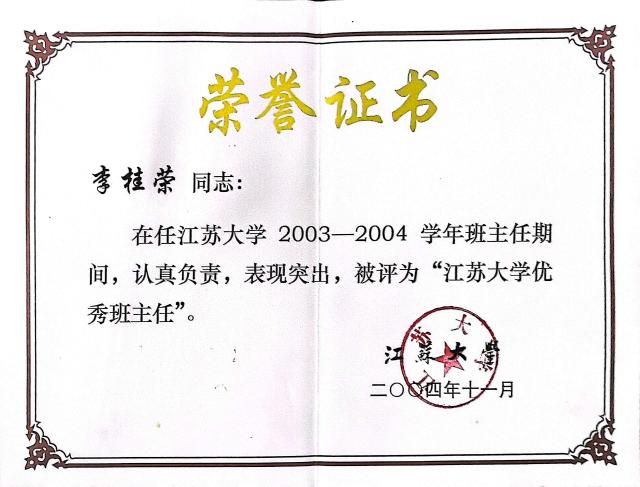 荣誉证书
李桂荣 同志：
在任江苏大学 2003—2004 学年班主任期
间，认真负责，表现突出，被评为“江苏大学优
秀班主任”。
江蘇大學
二〇〇四年十一月
江苏大学